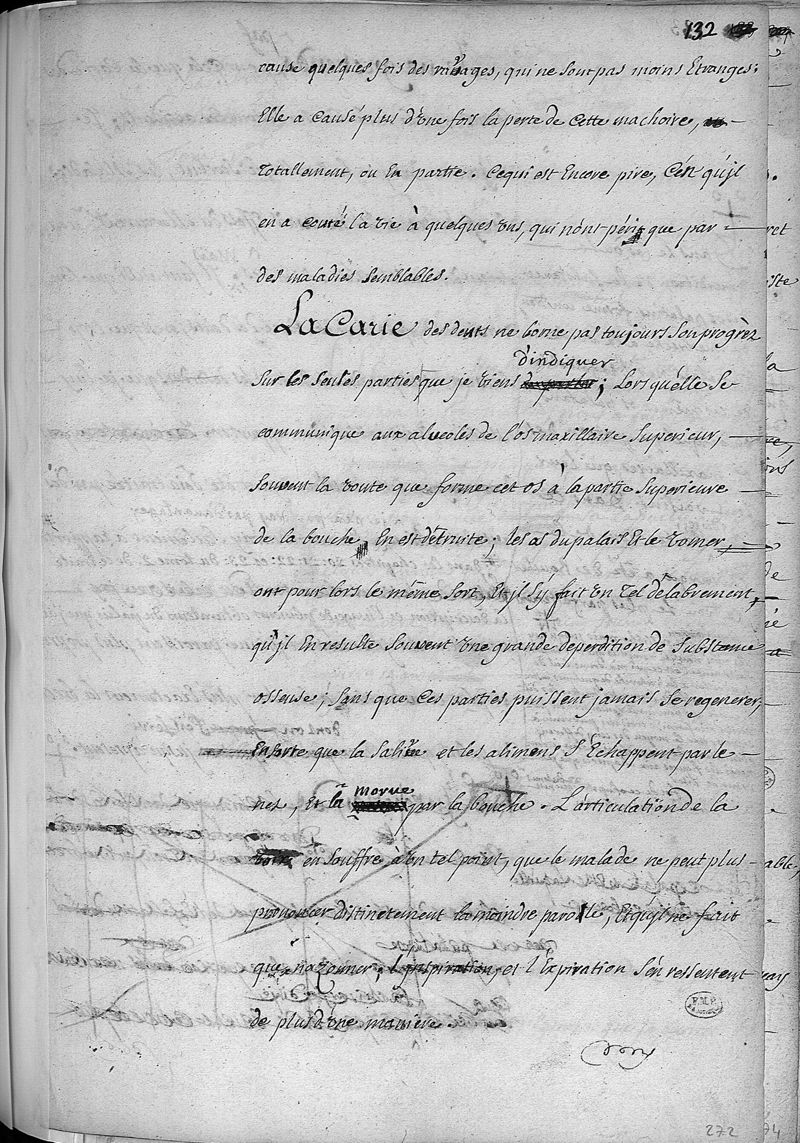 132
cause quelques fois des ravages, qui ne sont pas moins Etranges;
Elle a causé plus d'une fois la perte de cette machoire,
totallement, ou En partie. Cequi est Encore pire, C'est qu'jl
en a couté la vie à quelques uns, qui n'ont péri que par
des maladies semblables.
La Carie des dents ne borne pas toujours son progrèz
sur les seules parties que je viens d'indiquer; Lorsqu'elle se
communique aux alveoles de l'os maxillaire Superieur,
souvent la voute que forme cet os à la partie Superieure
de la bouche, En est détruite; les os du palais Et le vomer,
ont pour lors le même sort, Et jl s'y fait un tel délabrement,
qu'jl En resulte souvent une grande deperdition de Substance
osseuse; sans que Ces parties puissent jamais se regenerer;
Ensorte que la Salive et les alimens s'Echappent par le
nez, Et la morve par la bouche. L'articulation de la
voix en souffre à un tel point, que le malade ne peut plus
prononcer distinctement la moindre parolle, Et qu'jl ne fait
que nazonner; l'inspiration, et l'Expiration s'en ressentent
de plus d'une maniere.
272
74